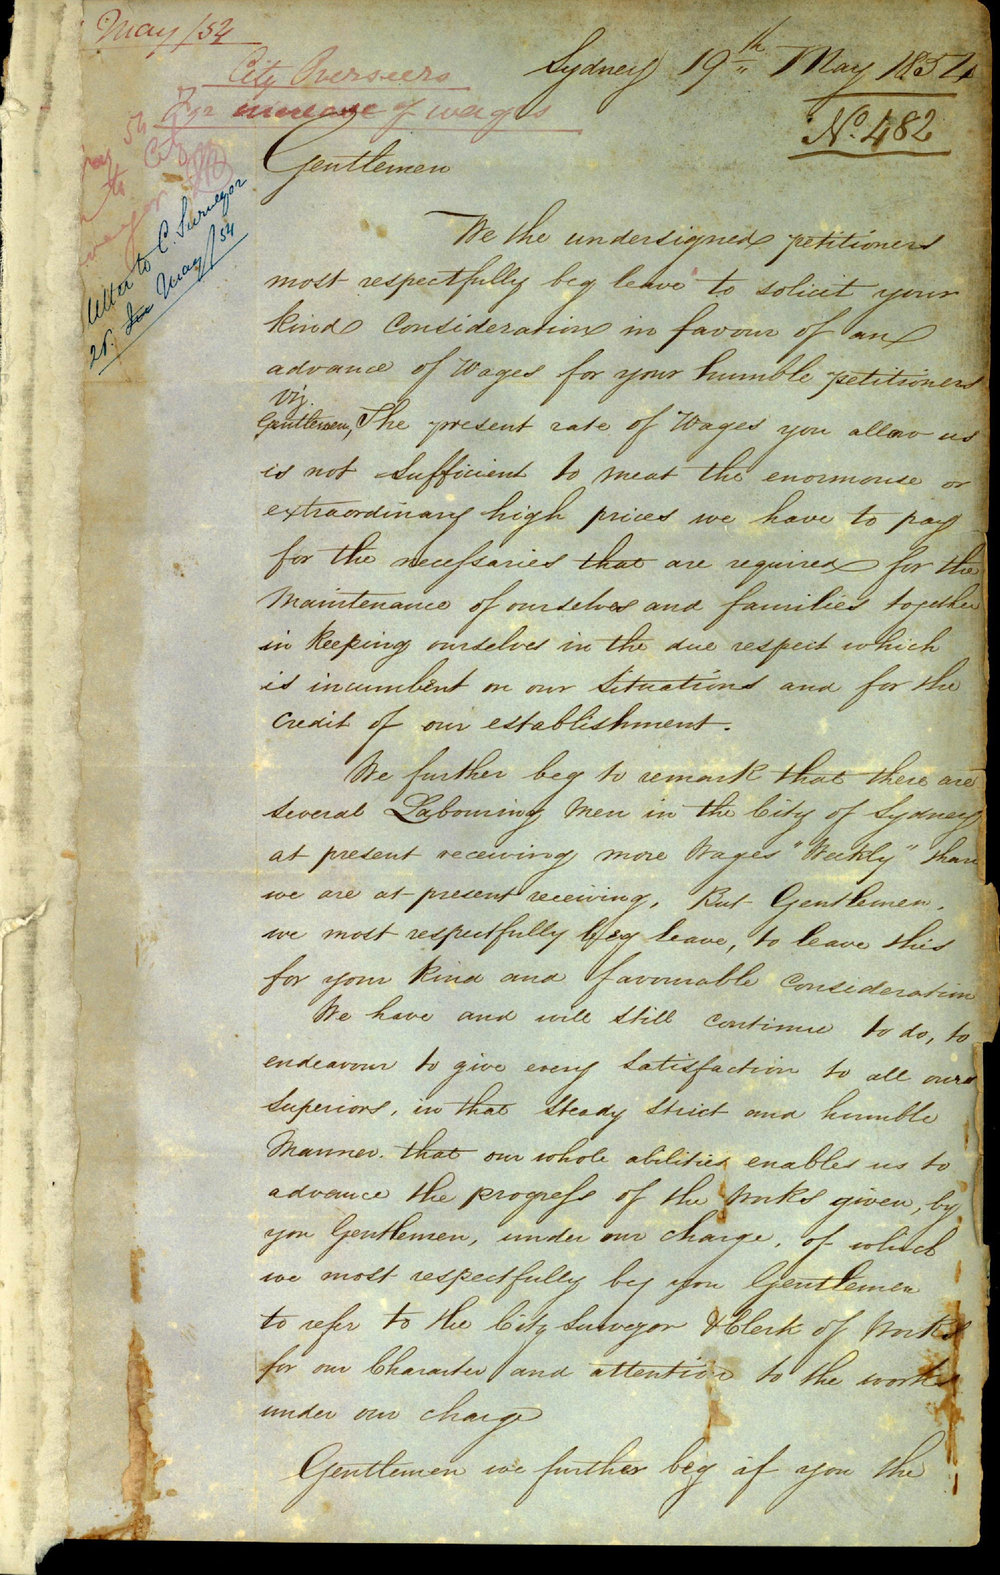 May /54
City Overseers
For increase of wages
Sydney 19th May 1854
No. 482
to C
Letter to C. Surveyor
25. May /54
Gentlemen
We the undersigned petitioners
most respectfully beg leave to solicit your
kind Consideration in favour of an
advance of Wages for your humble petitioners
Viz.
Gentlemen, The present rate of Wages you allow us
is not Sufficient to meat the enormouse or
extraordinary high prices we have to pay
for the necessaries that are required for the
Maintenance of ourselves and families together
in Keeping ourselves in the due respect which
is incumbent on our Situations and for the
Credit of our establishment.
We further beg to remark that there are
Several Labouring Men in the City of Sydney
at present receiving more Wages "Weekly" than
we are at present receiving, But Gentlemen,
we most respectfully beg leave, to leave this
for your Kind and favourable Consideration
We have and will Still Continue to do, to
endeavour to give every Satisfaction to all our
Superiors, in that Steady Strict and humble
Manner. that our whole abilities enables us to
advance the progress of the Works given, by
you Gentlemen, under our charge, of which
we most respectfully beg you Gentlemen
to refer to the City Surveyor & Clerk of Works
for our Character and attention to the works
under our charge
Gentlemen we further beg if you the